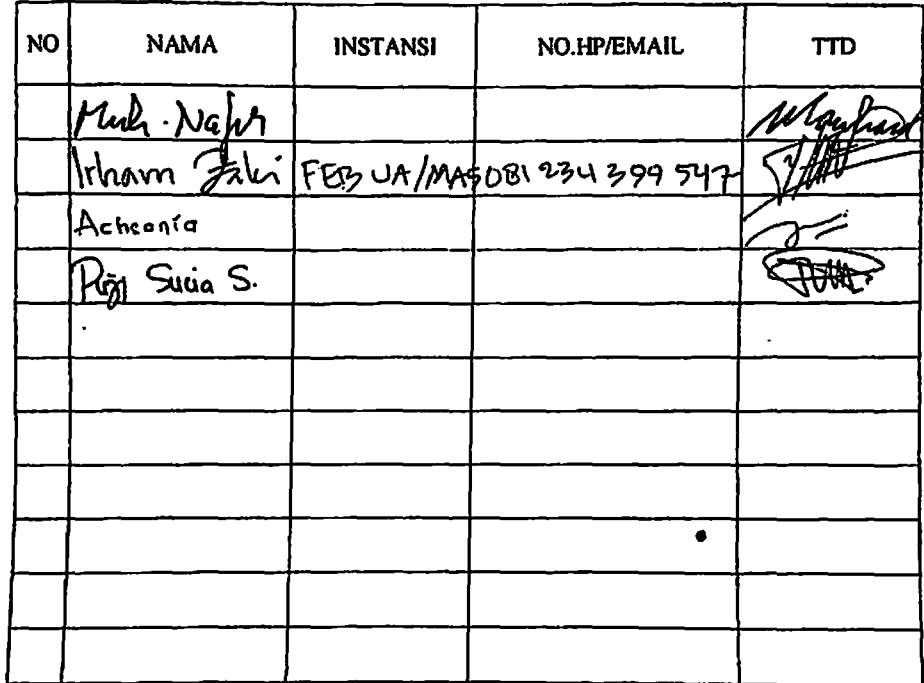 NO NAMA INSTANSI NO.HP/EMAIL TTD
Muh. Nafir
Irham Zaki FEB UA/MAS 081 234 399 547
Acheania
Sucia S.